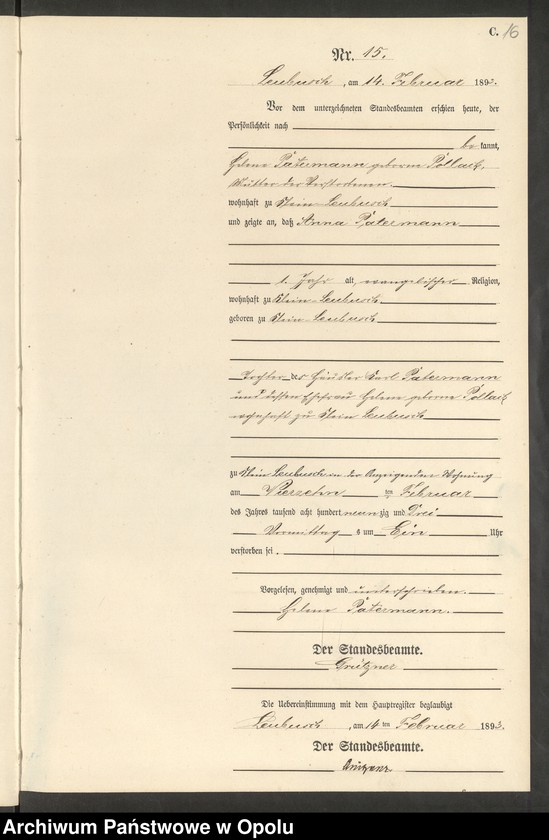 C. 16
Nr. 15.
Leubusch, am 14. Februar 1893.
Vor dem unterzeichneten Standesbeamten erschien heute, der
Persönlichkeit nach
be kannt,
Helene Patermann geborene Pollack,
Mutter der Verstorbenen.
wohnhaft zu Klein Leubusch
und zeigte an, daß Anna Patermann
1. Jahr alt, evangelischer Religion,
wohnhaft zu Klein-Leubusch
geboren zu Klein-Leubusch
Tochter des Häusler Karl Patermann
und dessen Ehefrau Helene geborene Pollack
wohnhaft zu Klein Leubusch
zu Klein Leubusch in der Anzeigenden Wohnung
am Vierzehn ten Februar
des Jahres tausend acht hundert neun zig und Drei
Vormittag s um Ein Uhr
verstorben sei.
Vorgelesen, genehmigt und unterschrieben.
Helene Patermann.
Der Standesbeamte.
Grützner
Die Uebereinstimmung mit dem Hauptregister beglaubigt
Leubusch, am 14 ten Februar 1893.
Der Standesbeamte.
Grützner
Archiwum Państwowe w Opolu